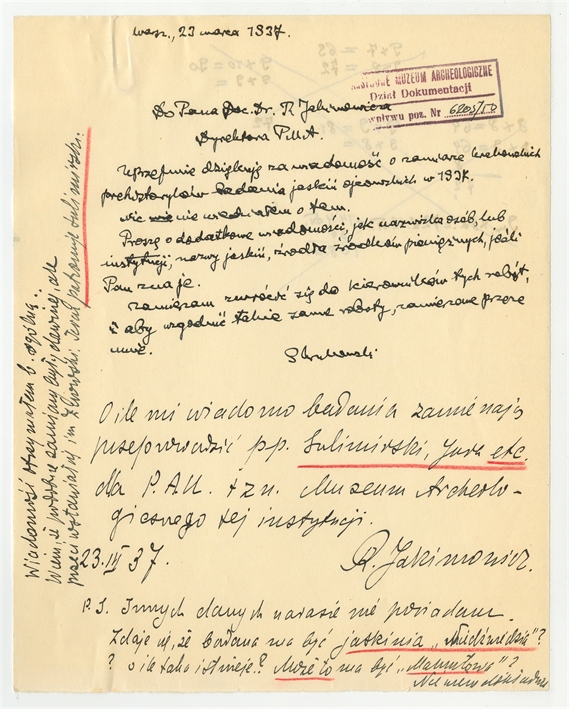 Warsz., 23 marca 1937.
PAŃSTWOWE MUZEUM ARCHEOLOGICZNE
Dział Dokumentacji
wpływu poz. Nr 6205/
Do Pana Doc. Dr. R. Jakimowicza
Dyrektora P.M.A.
Uprzejmie dziękuję za wiadomość o zamiarze krakowskich
prehistoryków badania jaskiń ojcowskich w 1937.
nie wiedziałem o tem.
Proszę o dodatkowe wiadomości, jak nazwiska osób, lub
instytucji, nazwy jaskiń, źródła środków pieniężnych, jeśli
Pan zna je.
Zamierzam zwrócić się do kierowników tych robót,
aby uzgodnić takie same roboty, zamierzone przeze
mnie.
S Krukowski
O ile mi wiadomo badania zamierzają
przeprowadzić pp. Sulimirski, Jura etc.
dla P.A.U. t zn. Muzeum Archeolo-
gicznego tej instytucji.
23.III 37. R. Jakimowicz.
P.S. Innych danych narazie nie posiadam.
Zdaje się, że badana ma być jaskinia „Niedźwiedzia"?
? o ile taka istnieje? Może to ma być „Mamutowa"?
Wiadomość otrzymałem b. ogólną.
Wiem, że podobne zamiary były dawniej, ale
przeciwstawiał się im Żurowski. Teraz